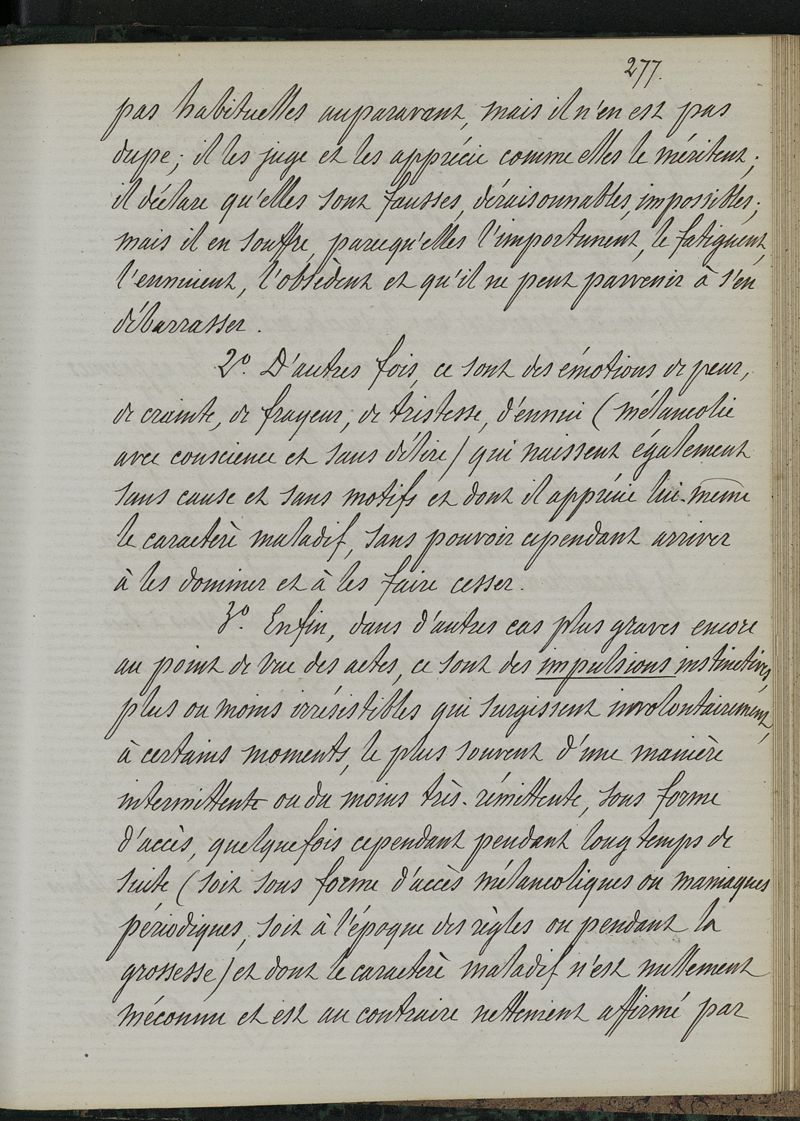 277.
pas habituelles auparavant, mais il n'en est pas
dupe; il les juge et les apprécie comme elles le méritent;
il déclare qu'elles sont fausses, déraisonnables, impossibles;
mais il en souffre, parcequ'elles l'importunent, le fatiguent,
l'ennuient, l'obsèdent et qu'il ne peut parvenir à s'en
débarrasser.
2º. D'autres fois, ce sont des émotions de peur,
de crainte, de frayeur, de tristesse, d'ennui (mélancolie
avec conscience et sans délire) qui naissent également
sans cause et sans motifs et dont il apprécie lui-même
le caractère maladif, sans pouvoir cependant arriver
à les dominer et à les faire cesser.
3º. Enfin, dans d'autres cas plus graves encore
au point de vue des actes, ce sont des impulsions instinctives,
plus ou moins irrésistibles qui surgissent involontairement,
à certains moments, le plus souvent d'une manière
intermittente ou du moins très-rémittente, sous forme
d'accès, quelquefois cependant pendant longtemps de
suite (soit sous forme d'accès mélancoliques ou maniaques
périodiques, soit à l'époque des règles ou pendant la
grossesse) et dont le caractère maladif n'est nullement
méconnu et est au contraire nettement affirmé par